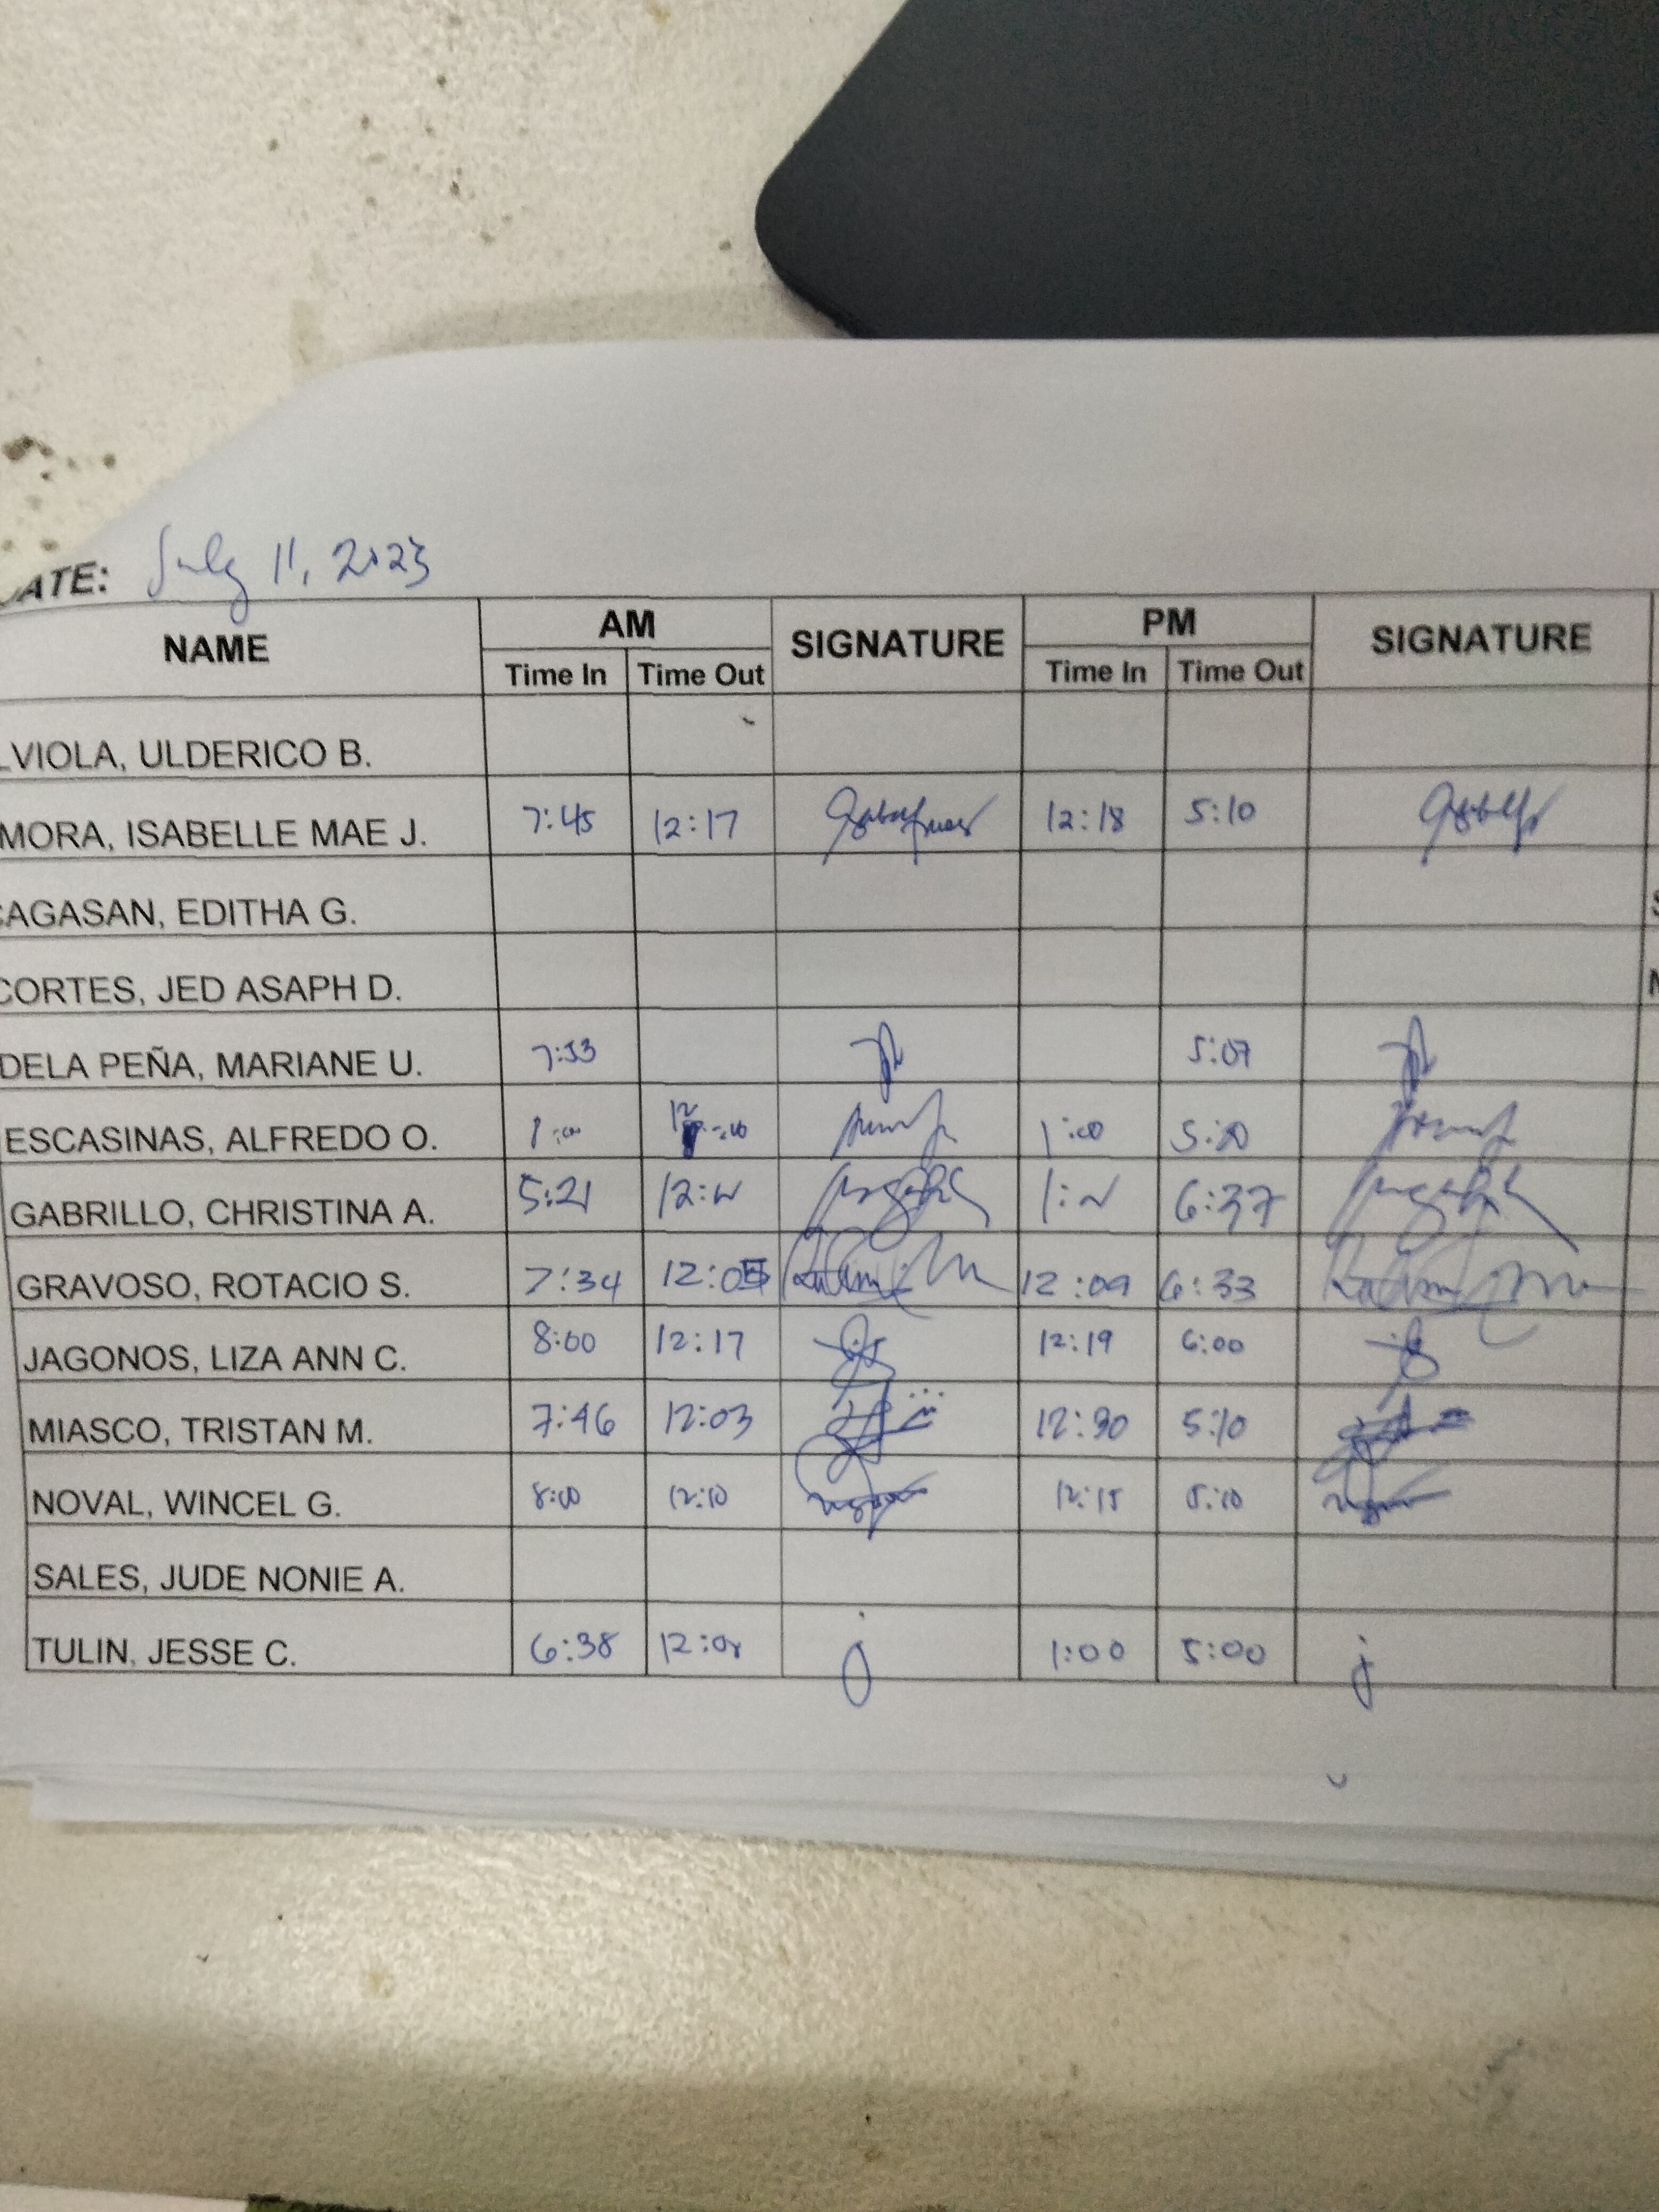 ATE: July 11, 2023
NAME AM SIGNATURE PM SIGNATURE
Time In Time Out Time In Time Out
LVIOLA, ULDERICO B.
MORA, ISABELLE MAE J. 7:45 12:17 12:18 5:10
CAGASAN, EDITHA G.
CORTES, JED ASAPH D.
DELA PEÑA, MARIANE U. 7:53 5:07
ESCASINAS, ALFREDO O. 1:00 5:20
GABRILLO, CHRISTINA A. 5:21 6:37
GRAVOSO, ROTACIO S. 7:34 12:05 12:09 6:33
JAGONOS, LIZA ANN C. 8:00 12:17 12:19 6:00
MIASCO, TRISTAN M. 7:46 12:03 12:30 5:10
NOVAL, WINCEL G. 8:00 12:10 12:15 5:10
SALES, JUDE NONIE A.
TULIN, JESSE C. 6:38 12:08 1:00 5:00